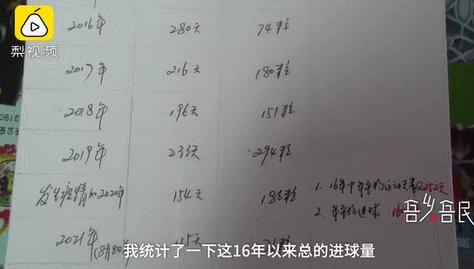 梨视频
2016年 280天 74粒
2017年 216天 180粒
2018年 196天 151粒
2019年 233天 294粒
发生疫情的2020年 154天 186粒
1. 16年中年的运动天数2252天
2021年
2. 年的进球
吾乡吾民
我统计了一下这16年以来总的进球量